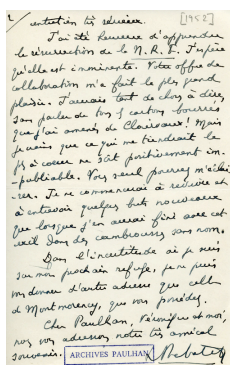 2
[1952]
entretien très sérieux.
J'ai été heureux d'apprendre
la résurrection de la N.R.F. J'espère
qu'elle est imminente. Votre offre de
collaboration m'a fait le plus grand
plaisir. J'aurais tant de choses à dire,
sans parler de tous les cartons bourrés
que j'ai amenés de Clairvaux! Mais
je crains que ce qui me tiendrait le
plus à cœur ne soit positivement im-
-publiable. Vous seul pourrez m'éclai-
-rer. Je ne commencerai à revivre et
à entrevoir quelques buts nouveaux
que lorsque j'en aurai fini avec cet
exil dans des cambrousses sans nom.
Dans l'incertitude où je suis
sur mon prochain refuge, je ne puis
vous donner d'autre adresse que celle
de Montmorency, que vous possédez.
Cher Paulhan, Véronique et moi,
nous vous adressons notre très amical
souvenir.
ARCHIVES PAULHAN
L Rebatet